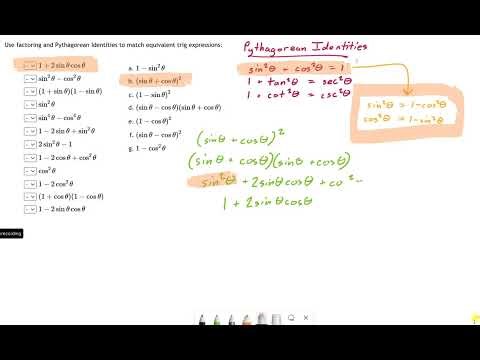 Use factoring and Pythagorean Identities to match equivalent trig expressions.
1 + 2 sin θ cos θ
sin² θ − cos² θ
(1 + sin θ)(1 − sin θ)
sin² θ
sin² θ − cos² θ
1 − 2 sin θ + sin² θ
2 sin² θ − 1
1 − 2 cos θ + cos² θ
cos² θ
1 − 2 cos² θ
(1 + cos θ)(1 − cos θ)
1 − 2 sin θ cos θ
a. 1 − sin² θ
b. (sin θ + cos θ)²
c. (1 − sin θ)²
d. (sin θ − cos θ)(sin θ + cos θ)
e. (1 − cos θ)²
f. (sin θ − cos θ)²
g. 1 − cos² θ
Pythagorean Identities
sin²θ + cos²θ = 1
1 + tan²θ = sec²θ
1 + cot²θ = csc²θ
sin²θ = 1 − cos²θ
cos²θ = 1 − sin²θ
(sinθ + cosθ)²
(sinθ + cosθ)(sinθ + cosθ)
sin²θ + 2sinθcosθ + co²
1 + 2sinθcosθ
recording